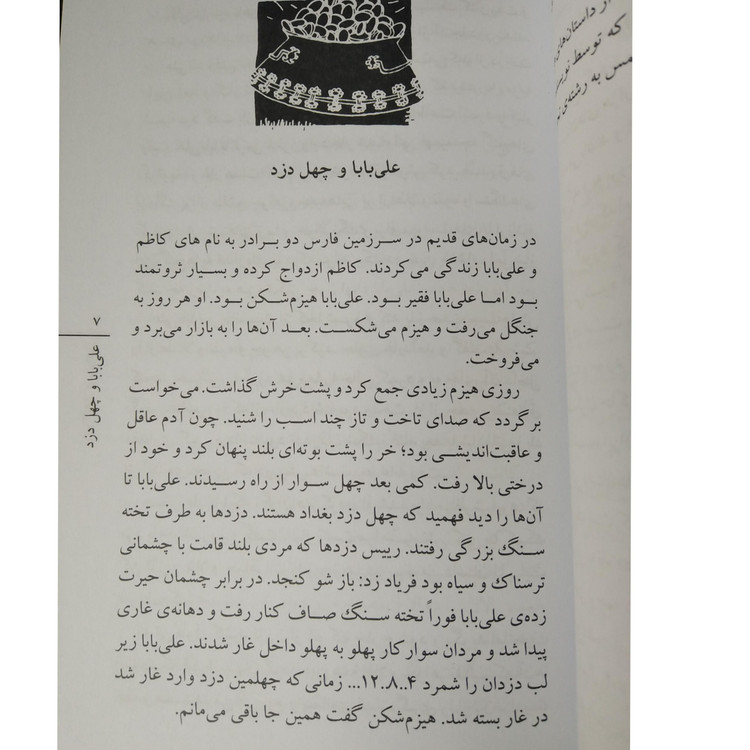 علی‌بابا و چهل دزد
در زمان‌های قدیم در سرزمین فارس دو برادر به نام های کاظم
و علی‌بابا زندگی می‌کردند. کاظم ازدواج کرده و بسیار ثروتمند
بود اما علی‌بابا فقیر بود. علی‌بابا هیزم‌شکن بود. او هر روز به
جنگل می‌رفت و هیزم می‌شکست. بعد آن‌ها را به بازار می‌برد و
می‌فروخت.
روزی هیزم زیادی جمع کرد و پشت خرش گذاشت. می‌خواست
برگردد که صدای تاخت و تاز چند اسب را شنید. چون آدم عاقل
و عاقبت‌اندیشی بود؛ خر را پشت بوته‌ای بلند پنهان کرد و خود از
درختی بالا رفت. کمی بعد چهل سوار از راه رسیدند. علی‌بابا تا
آن‌ها را دید فهمید که چهل دزد بغداد هستند. دزدها به طرف تخته
سنگ بزرگی رفتند. رییس دزدها که مردی بلند قامت با چشمانی
ترسناک و سیاه بود فریاد زد: باز شو کنجد. در برابر چشمان حیرت
زده‌ی علی‌بابا فوراً تخته سنگ صاف کنار رفت و دهانه‌ی غاری
پیدا شد و مردان سوار کار پهلو به پهلو داخل غار شدند. علی‌بابا زیر
لب دزدان را شمرد ۴..۸..۱۲... زمانی که چهلمین دزد وارد غار شد
در غار بسته شد. هیزم‌شکن گفت همین جا باقی می‌مانم.
۷
علی‌بابا و چهل دزد
از داستان‌های
که توسط
به رشته‌ی